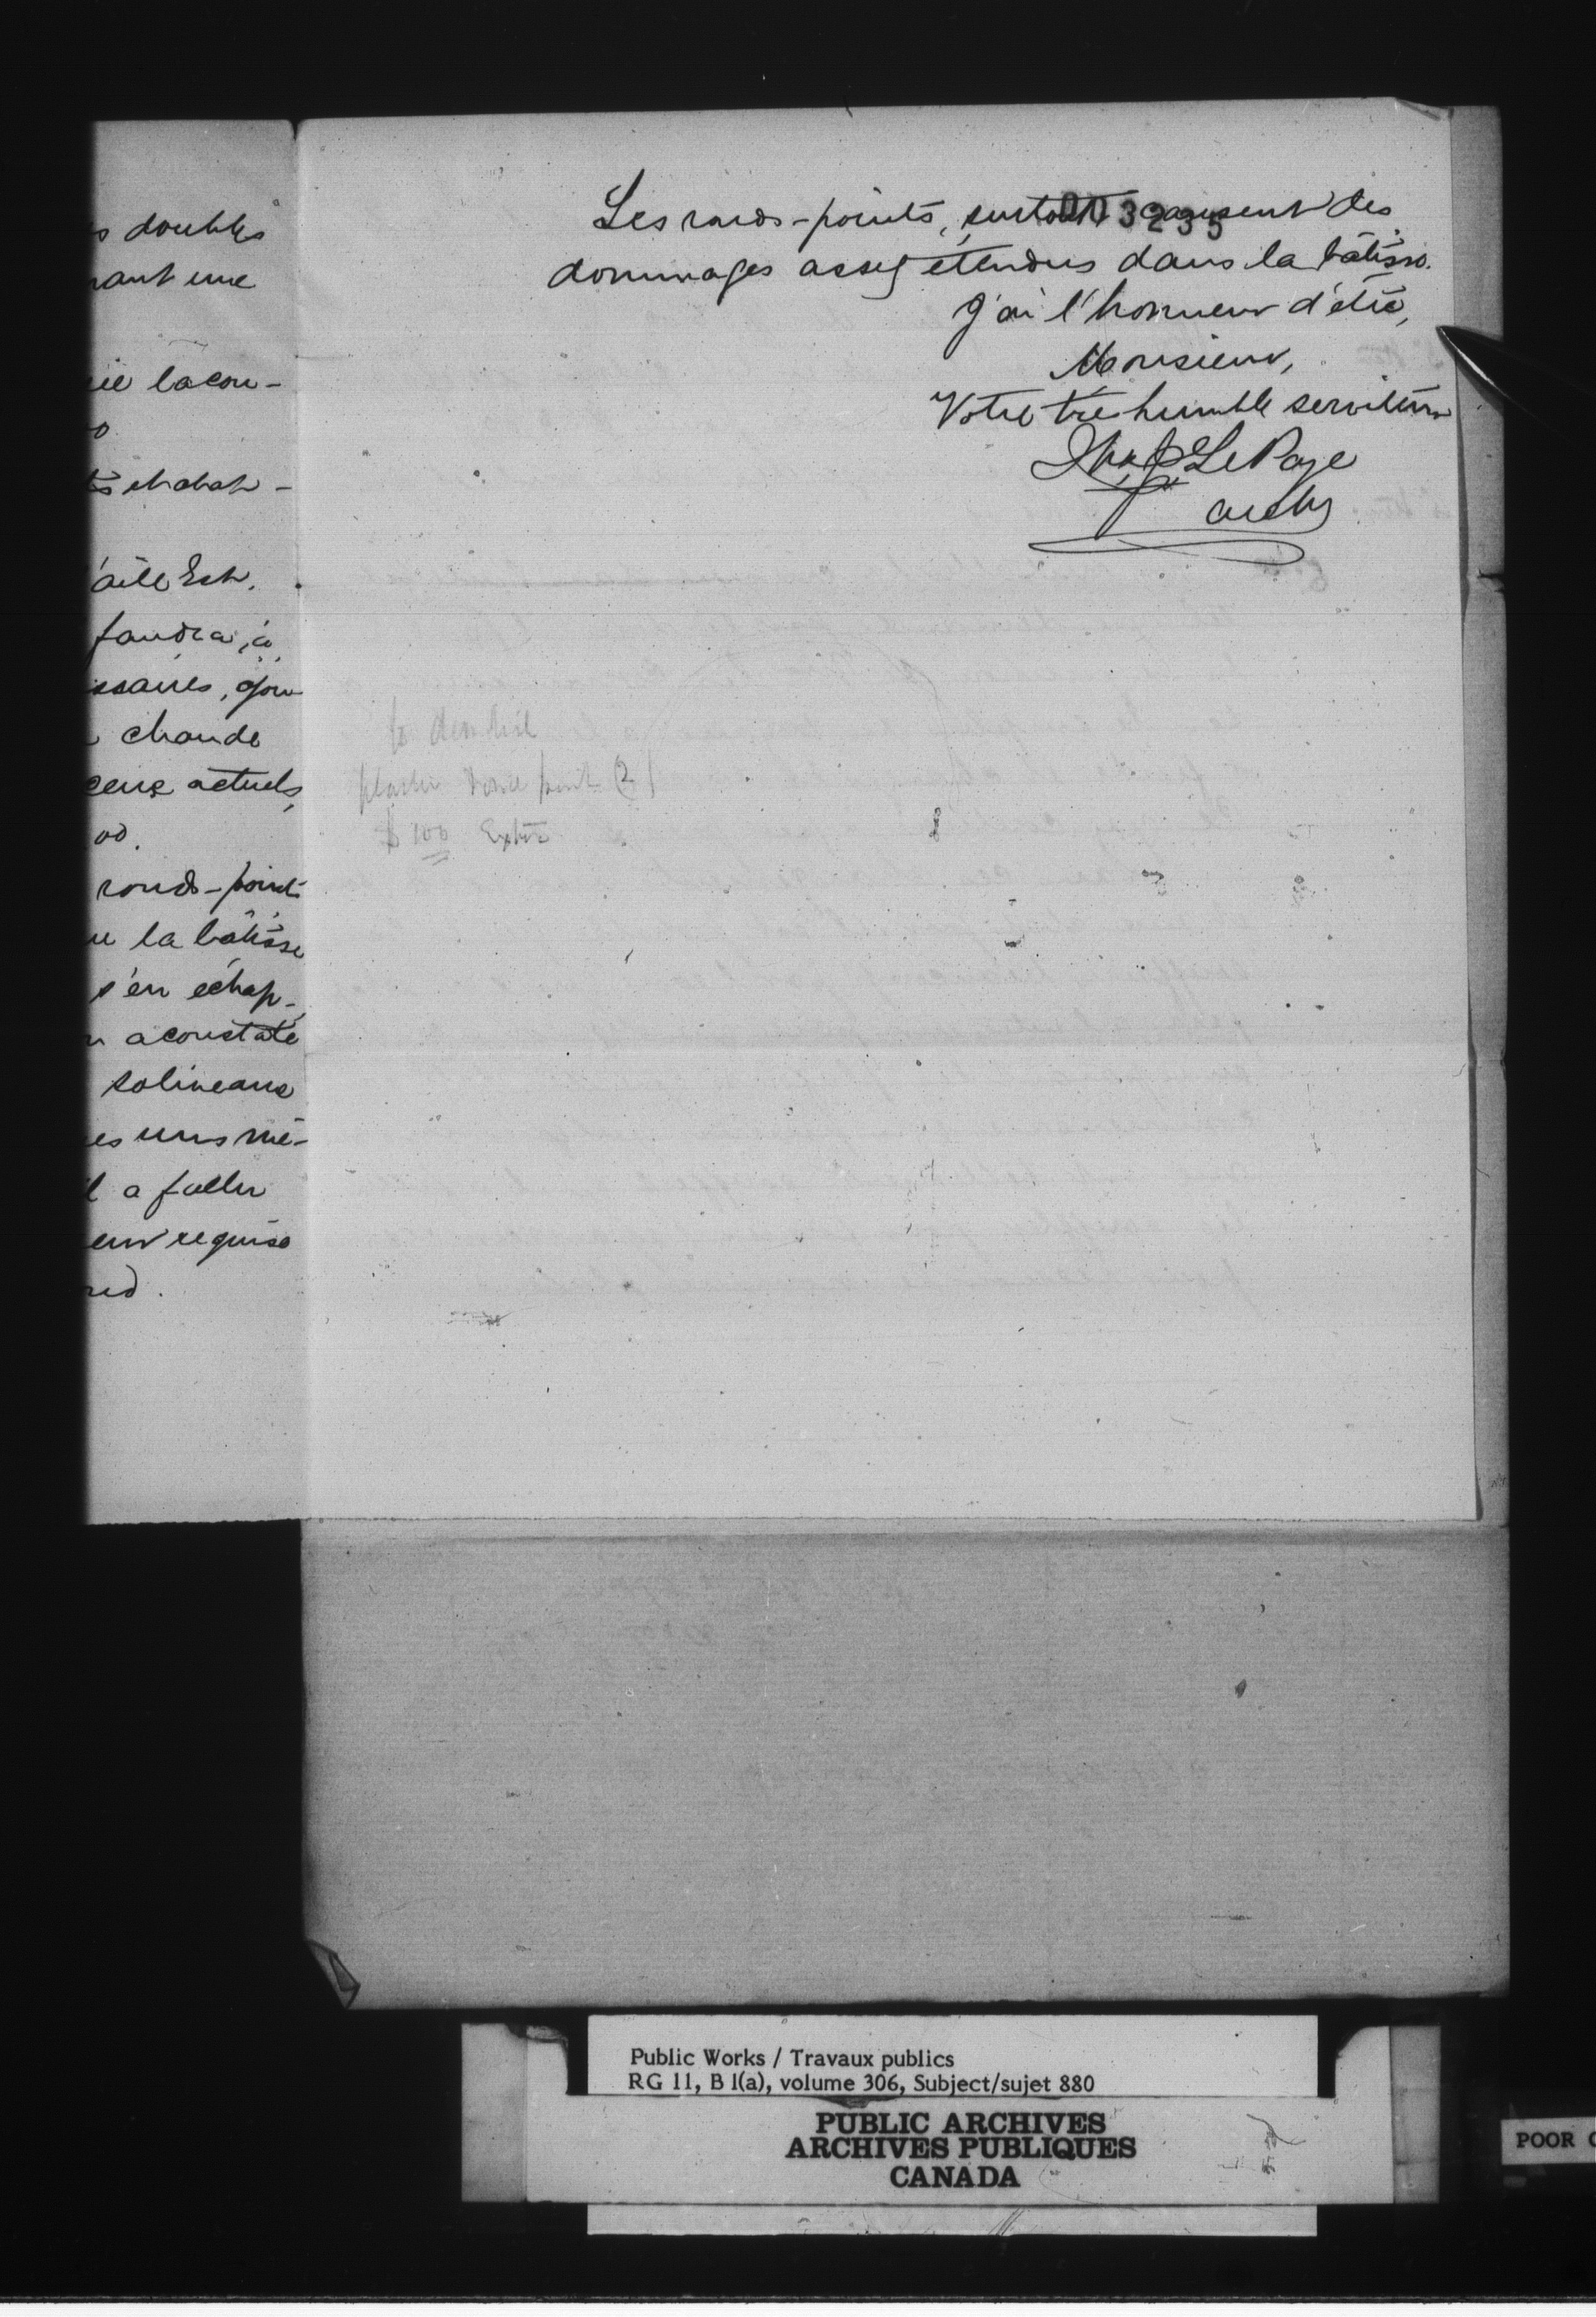 s doubles
nant une
rie la cou-
o
ts et chat-
'aile Est.
faudra, à
ssaires, pou-
chaude
ceux actuels,
od.
ronds-points
la bâtisse
s'en échap-
a constaté
solineaux
es uns mê-
l a fallu
eur requise
rid.
003235
Les ronds-points, surtout causent des
dommages assez étendus dans la bâtisse.
J'ai l'honneur d'être,
Monsieur,
Votre très humble serviteur
LePage
archt
plaster rond point (2)
$ 100 Extra
Public Works / Travaux publics
RG 11, B 1(a), volume 306, Subject/sujet 880
PUBLIC ARCHIVES
ARCHIVES PUBLIQUES
CANADA
POOR